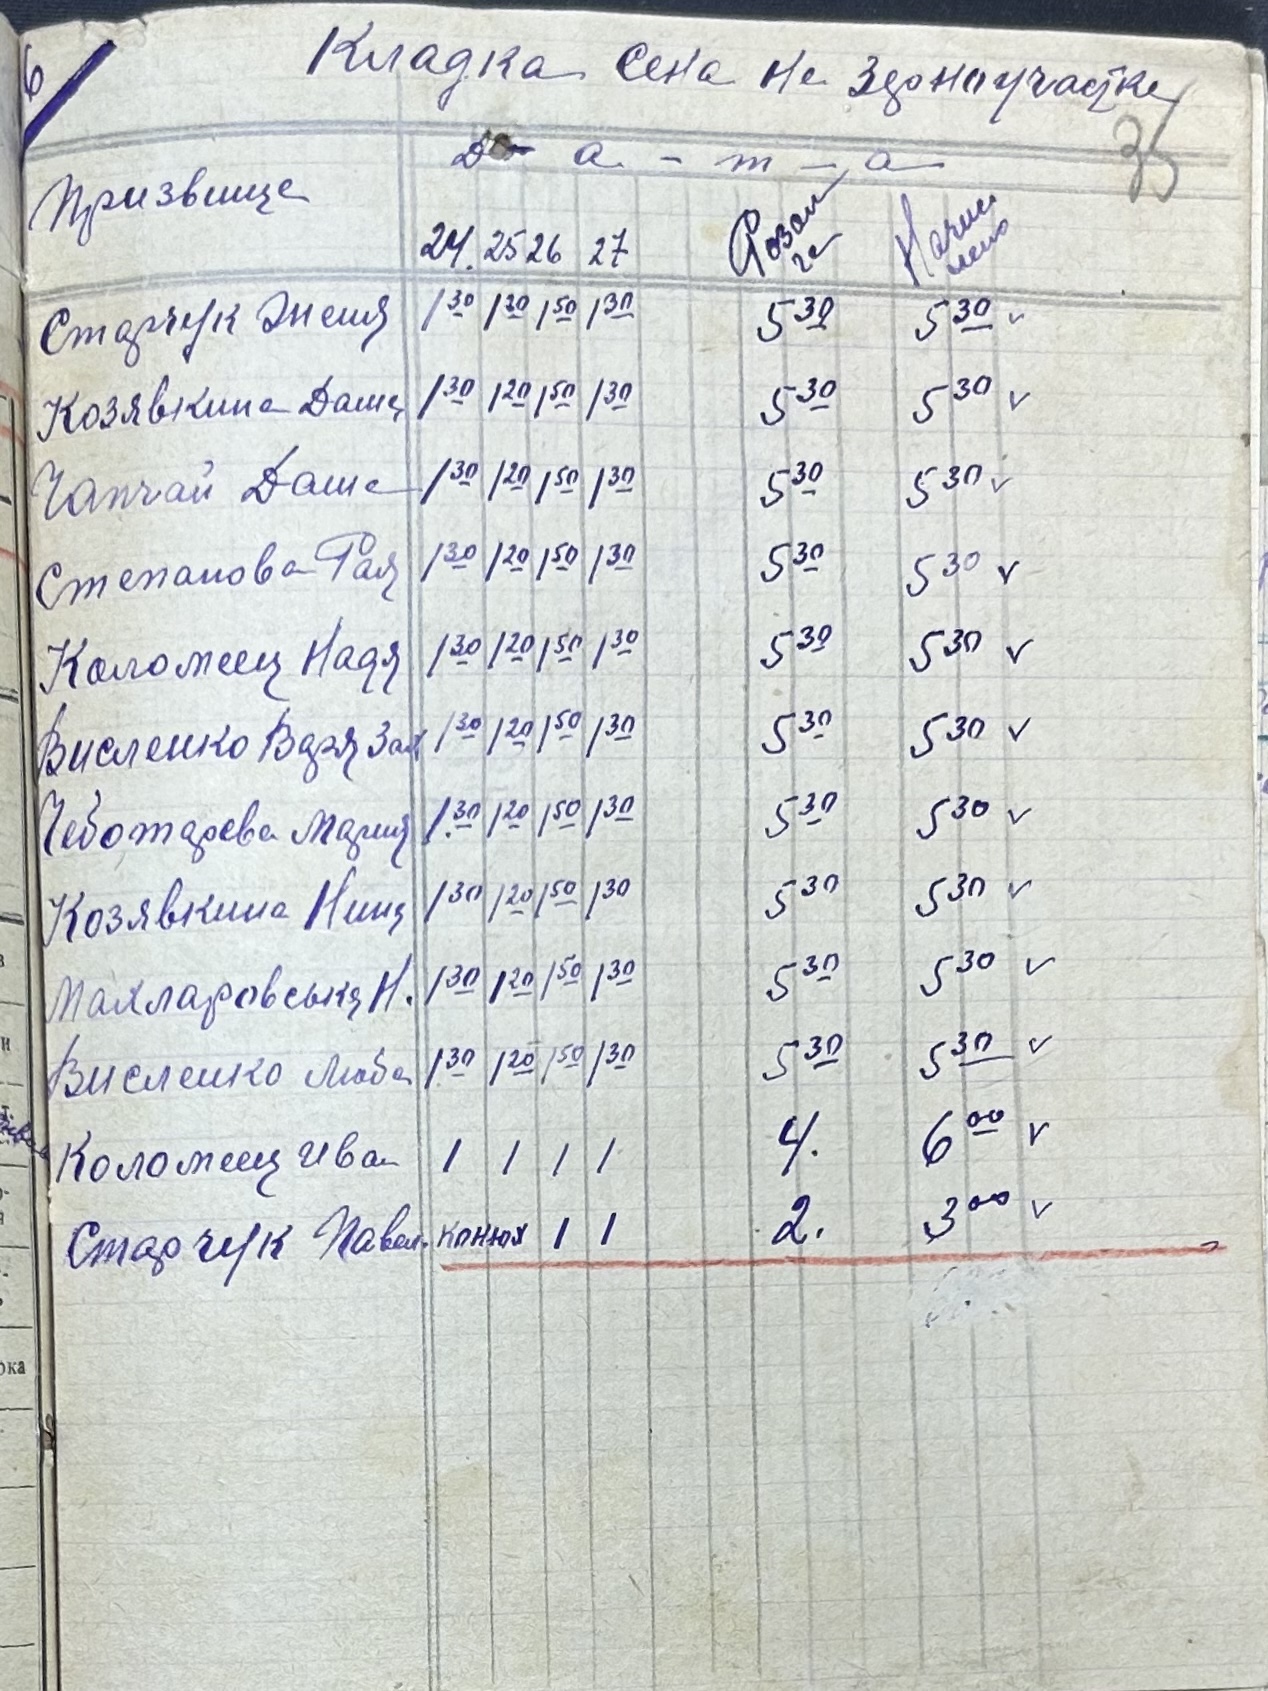 6
Кладка сена на Здоноучастке
35
Д - а - т - а
Призвище
24. 25 26 27 Розом че Начис лено
Старчук Женя 1 30 1 20 1 50 1 30 5 30 5 30 v
Козявкина Даша 1 30 1 20 1 50 1 30 5 30 5 30 v
Чапчай Даша 1 30 1 20 1 50 1 30 5 30 5 30 v
Степанова Рая 1 30 1 20 1 50 1 30 5 30 5 30 v
Коломеец Надя 1 30 1 20 1 50 1 30 5 30 5 30 v
Висленко Варя Зах 1 30 1 20 1 50 1 30 5 30 5 30 v
Чеботарева Мария 1 30 1 20 1 50 1 30 5 30 5 30 v
Козявкина Нина 1 30 1 20 1 50 1 30 5 30 5 30 v
Махларовська Н. 1 30 1 20 1 50 1 30 5 30 5 30 v
Висленко Люба 1 30 1 20 1 50 1 30 5 30 5 30 v
Коломеец Ива 1 1 1 1 4. 6 00 v
Старчук Павел. конюх 1 1 2. 3 00 v